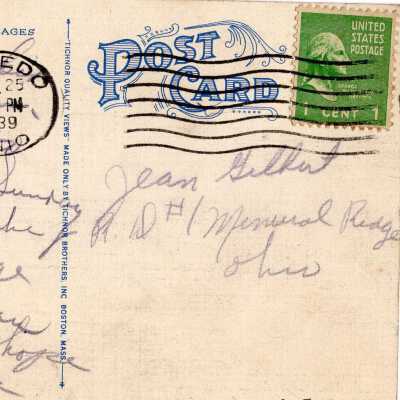 AGES
EDO
25
PM
39
OHIO
TICHNOR QUALITY VIEWS" MADE ONLY BY TICHNOR BROTHERS, INC. BOSTON, MASS.
POST CARD
UNITED
STATES
POSTAGE
1 CENT 1
Jean Gilbert
R. D #1 Mineral Ridge
Ohio
Sunday
hope